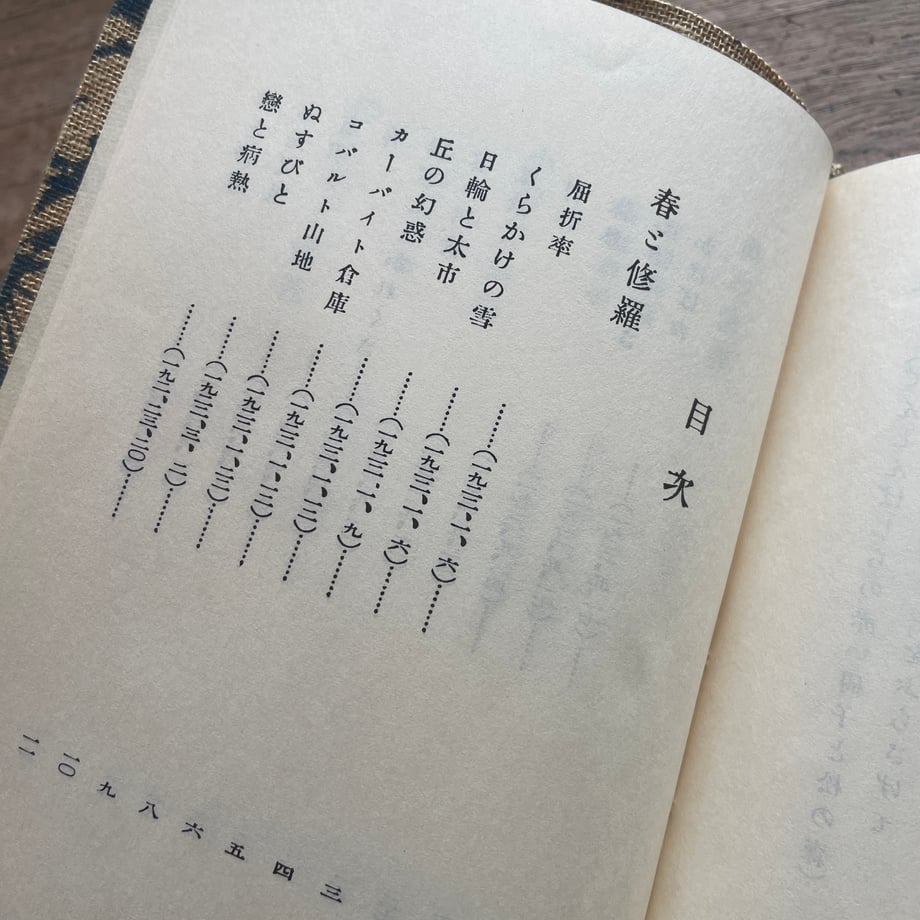 目次
春と修羅
屈折率……(一九二二、一、六)……三
くらかけの雪……(一九二二、一、六)……四
日輪と太市……(一九二二、一、九)……五
丘の幻惑……(一九二二、一、一二)……六
カーバイト倉庫……(一九二二、一、一二)……八
コバルト山地……(一九二二、一、二二)……九
ぬすびと……(一九二二、三、二)……一〇
戀と病熱……(一九二、二三、二〇)……一一